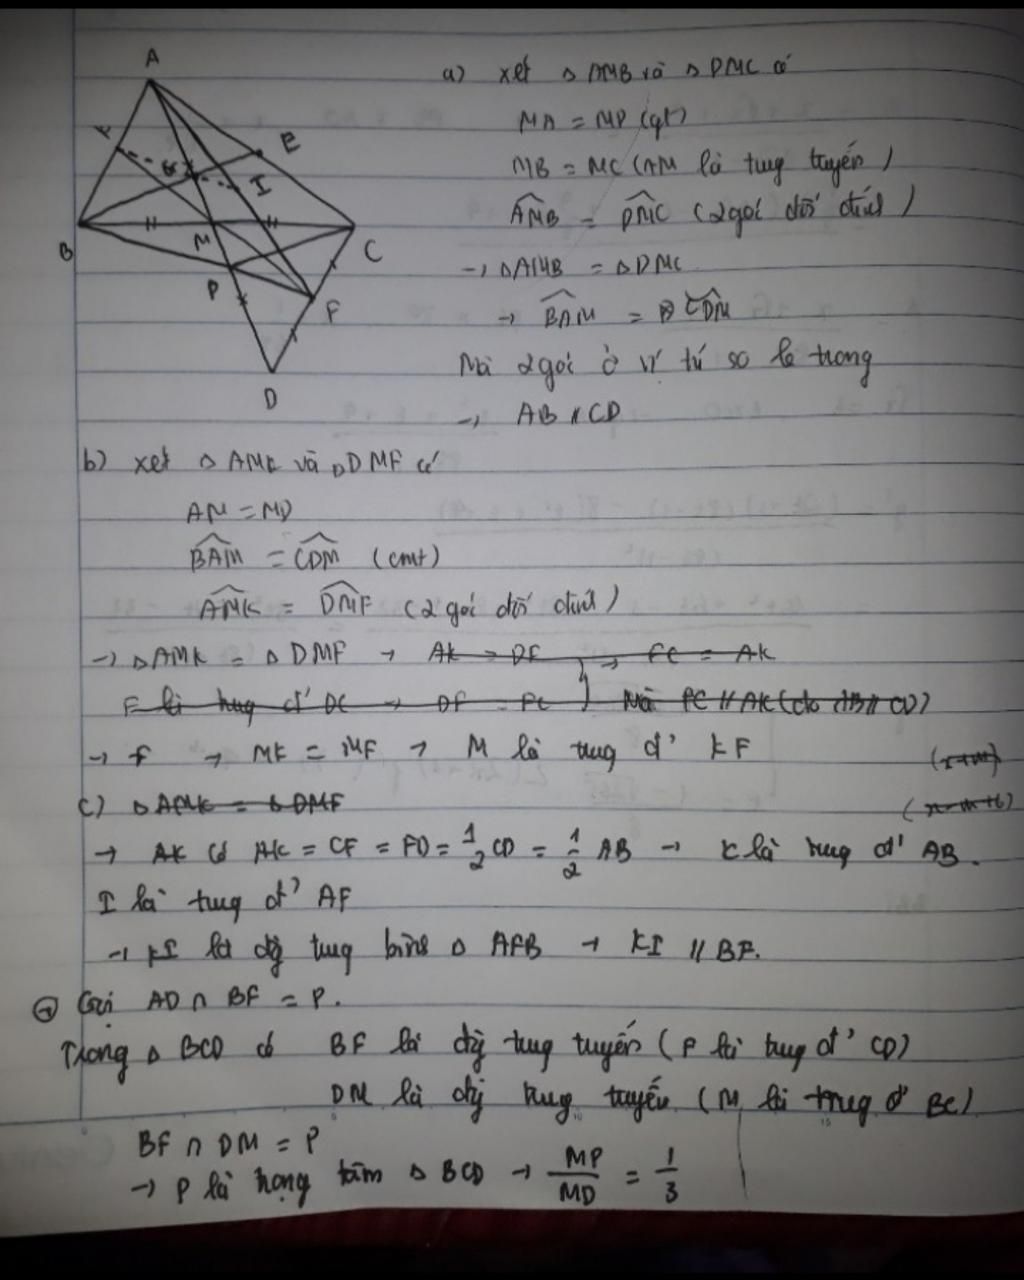 A
K
G
E
I
B
M
C
P
F
D
a) xét △ AMB và △ DMC có
MA = MD (gt)
MB = MC (AM là trung tuyến)
AMB = DMC (2 góc đối đỉnh)
→ △AMB = △DMC
→ BAM = CDM
Mà 2 góc ở vị trí so le trong
→ AB // CD
b) xét △ AMK và △DMF có
AM = MD
BAM = CDM (cmt)
AMK = DMF (2 góc đối đỉnh)
→ △AMK = △ DMF → AK = DF → FC = AK
F là trung đ' DC → DF = FC } Mà FC // AK (do AB // CD)
→ f → MK = MF → M là trung đ' KF
c) △ AMK = △ DMF
→ AK có AK = CF = FD = 1/2 CD = 1/2 AB → K là trung đ' AB.
I là trung đ' AF
→ KI là đg trung bình △ AFB → KI // BF.
Gọi AD ∩ BF = P.
Trong △ BCD có BF là đg trung tuyến (F là trung đ' CD)
DM là đg trung tuyến (M là trung đ' BC)
BF ∩ DM = P
→ P là trọng tâm △ BCD → MP/MD = 1/3